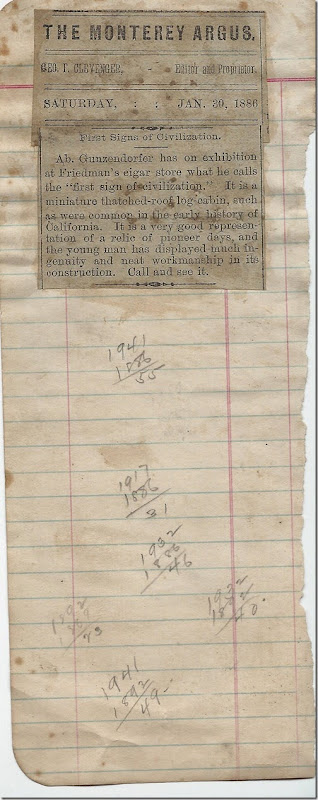 THE MONTEREY ARGUS.
GEO. T. CLEVENGER, - Editor and Proprietor.
SATURDAY, : : JAN. 30, 1886
First Signs of Civilization.
Ab. Gunzendorfer has on exhibition
at Friedman's cigar store what he calls
the "first sign of civilization." It is a
miniature thatched-roof log cabin, such
as were common in the early history of
California. It is a very good represen-
tation of a relic of pioneer days, and
the young man has displayed much in-
genuity and neat workmanship in its
construction. Call and see it.
1941
1886
55
1917
1886
31
1932
1886
46
1932
1892
40.
1892
23
1941
1892
49